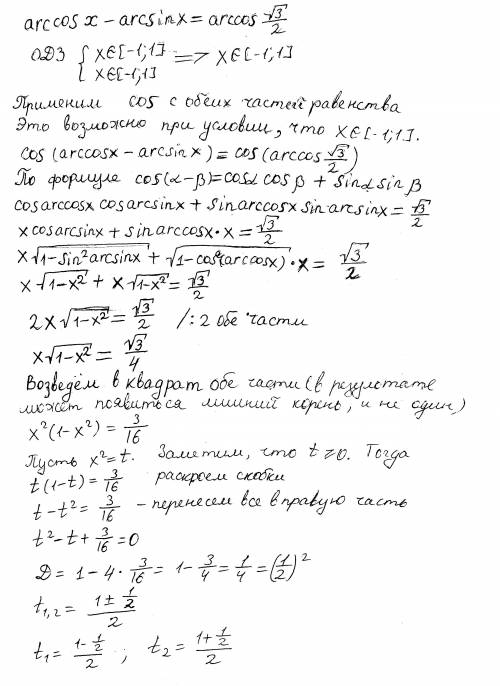 arccos x - arcsin x = arccos √3/2
ОДЗ { x∈[-1;1] x∈[-1;1] => x∈[-1;1]
Применим cos с обеих частей равенства
Это возможно при условии, что x∈[-1;1].
cos(arccosx - arcsinx) = cos(arccos √3/2)
По формуле cos(α-β)=cosα cosβ + sinα sinβ
cosarccosx cosarcsinx + sinarccosx sinarcsinx = √3/2
x cosarcsinx + sinarccosx·x = √3/2
x√(1-sin²arcsinx) + √(1-cos²(arccosx))·x = √3/2
x√(1-x²) + x√(1-x²) = √3/2
2x√(1-x²) = √3/2 /:2 обе части
x√(1-x²) = √3/4
Возведём в квадрат обе части (в результате
может появиться лишний корень, и не один)
x²(1-x²) = 3/16
Пусть x²=t. Заметим, что t≥0. Тогда
t(1-t) = 3/16 раскроем скобки
t-t² = 3/16 - перенесем все в правую часть
t²-t+3/16=0
D = 1-4·3/16 = 1-3/4 = 1/4 = (1/2)²
t1,2 = (1±1/2)/2
t1 = (1-1/2)/2 ; t2 = (1+1/2)/2